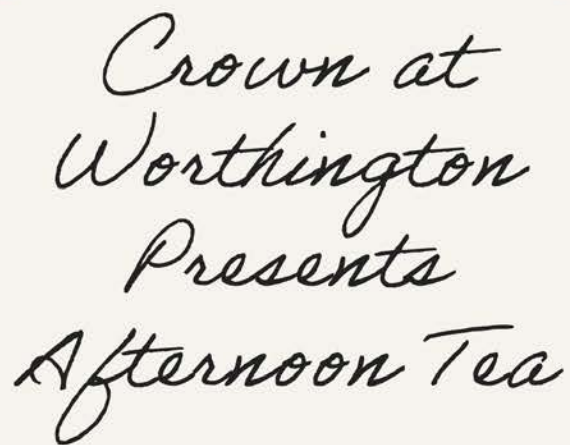 Crown at
Worthington
Presents
Afternoon Tea